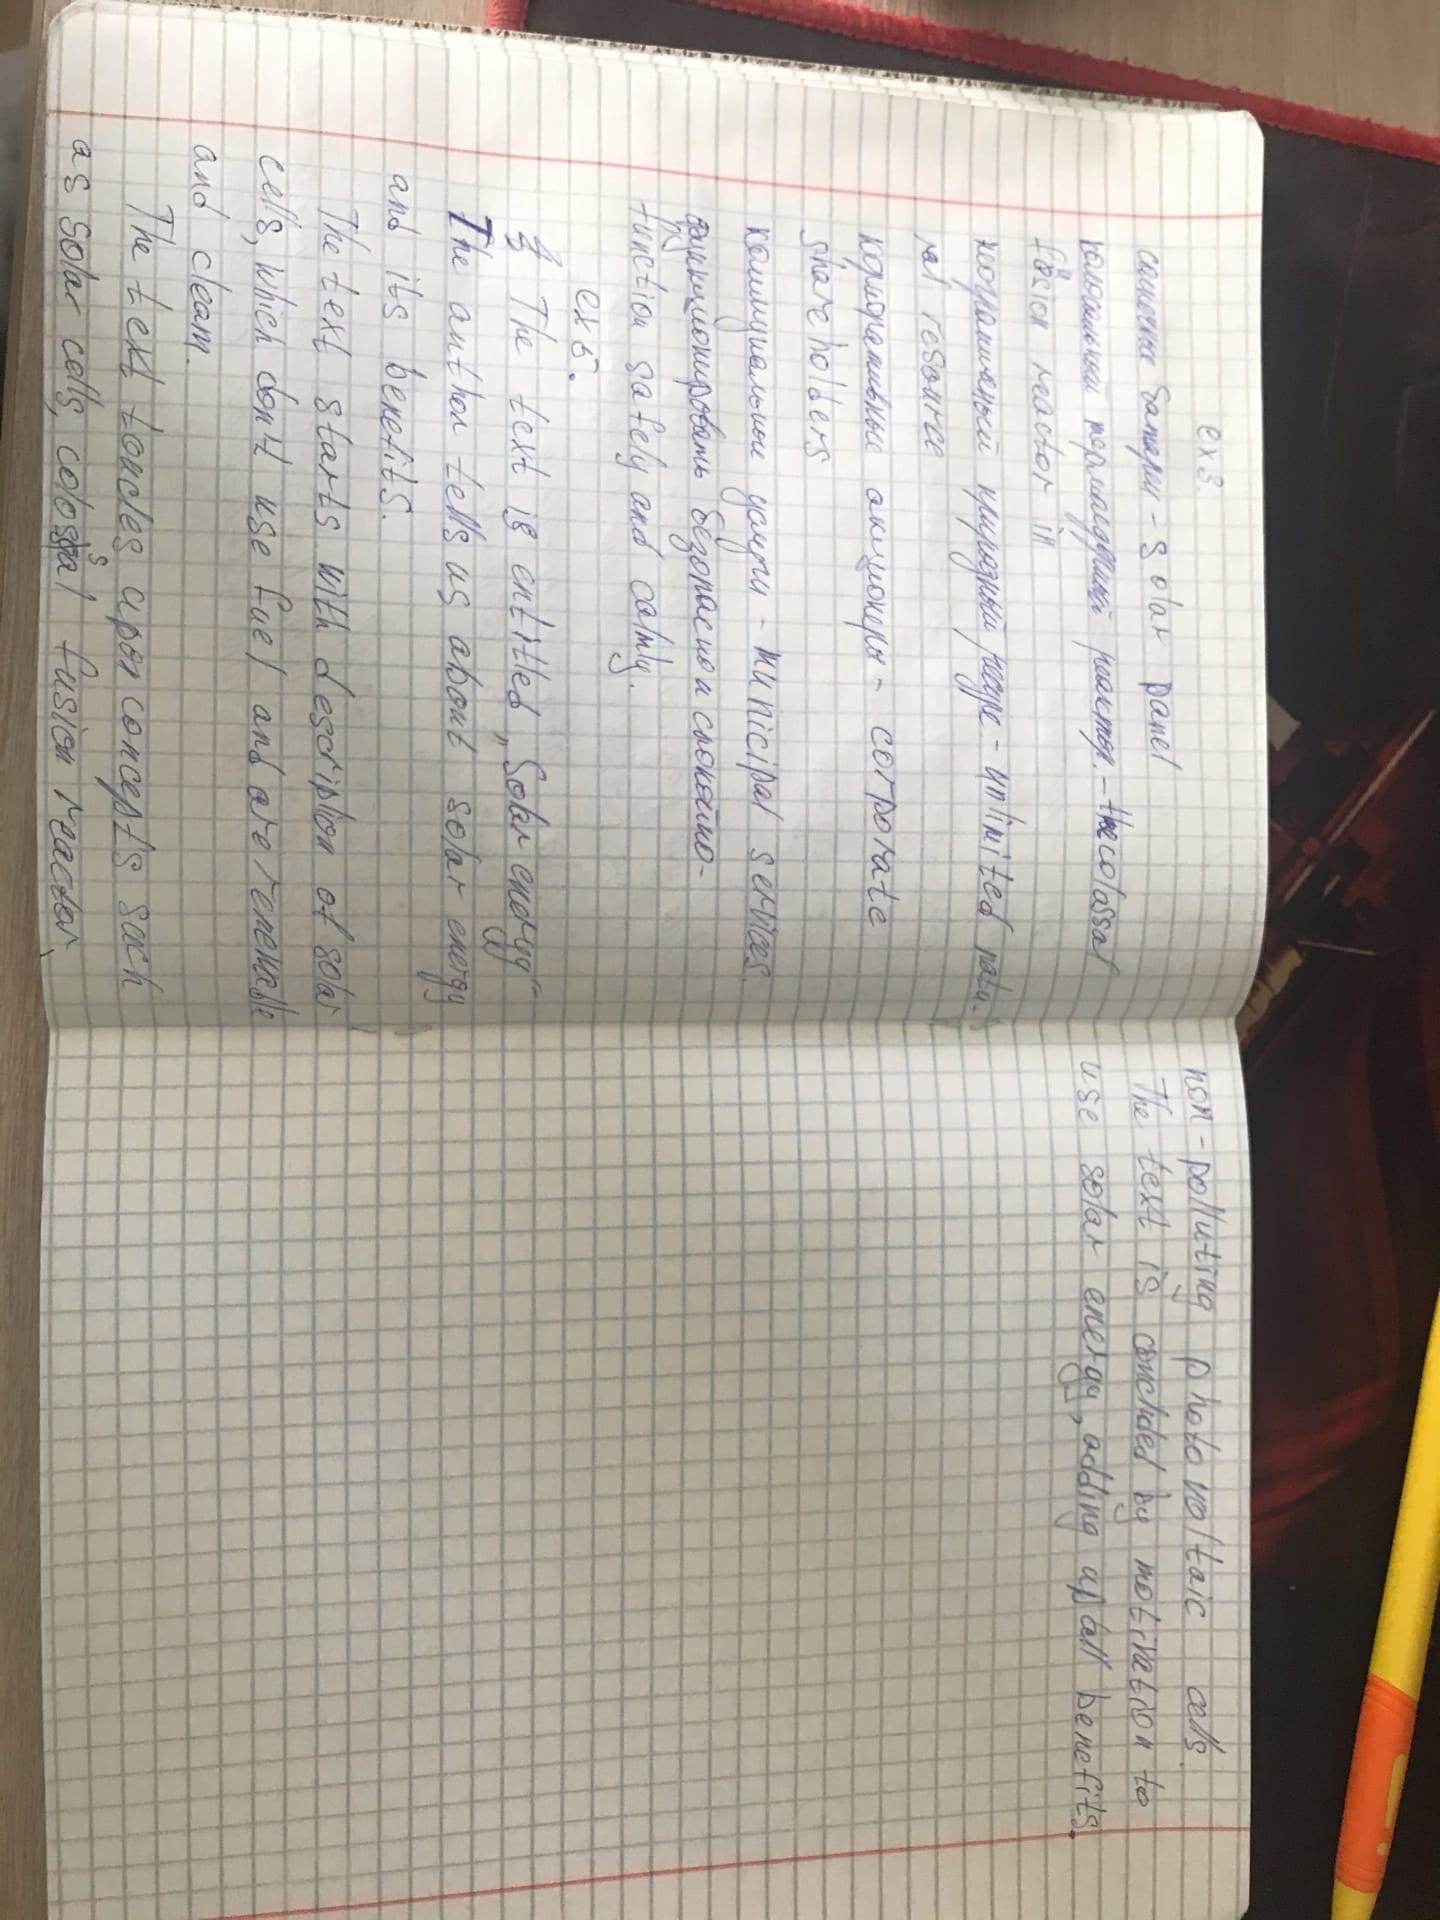 ex3.
солнечн батареи - solar panel
колоссальный термоядерный реактор. - the colossal
fusion reactor in
неограниченный природный ресурс - unlimited natu-
ral resource
корпоративные акционеры - corporate
shareholders
коммунальные услуги - municipal services.
функционировать безопасно и спокойно -
function safely and calmly.
ex5.
The text is entitled „Solar energy"
The author tells us about solar energy
and its benefits.
The text starts with description of solar
cells, which don't use fuel and are renewable
and clean.
The text toucles upon concepts sach
as solar cells, colossal fusion reactor,
non-polluting photovoltaic cells.
The text is concluded by motivation to
use solar energy, adding up all benefits.